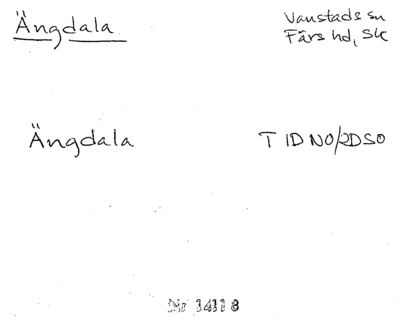 Ängdala
Vanstads sn
Färs hd, Sk
Ängdala
T 1D NO/2D SO
Nr 14118